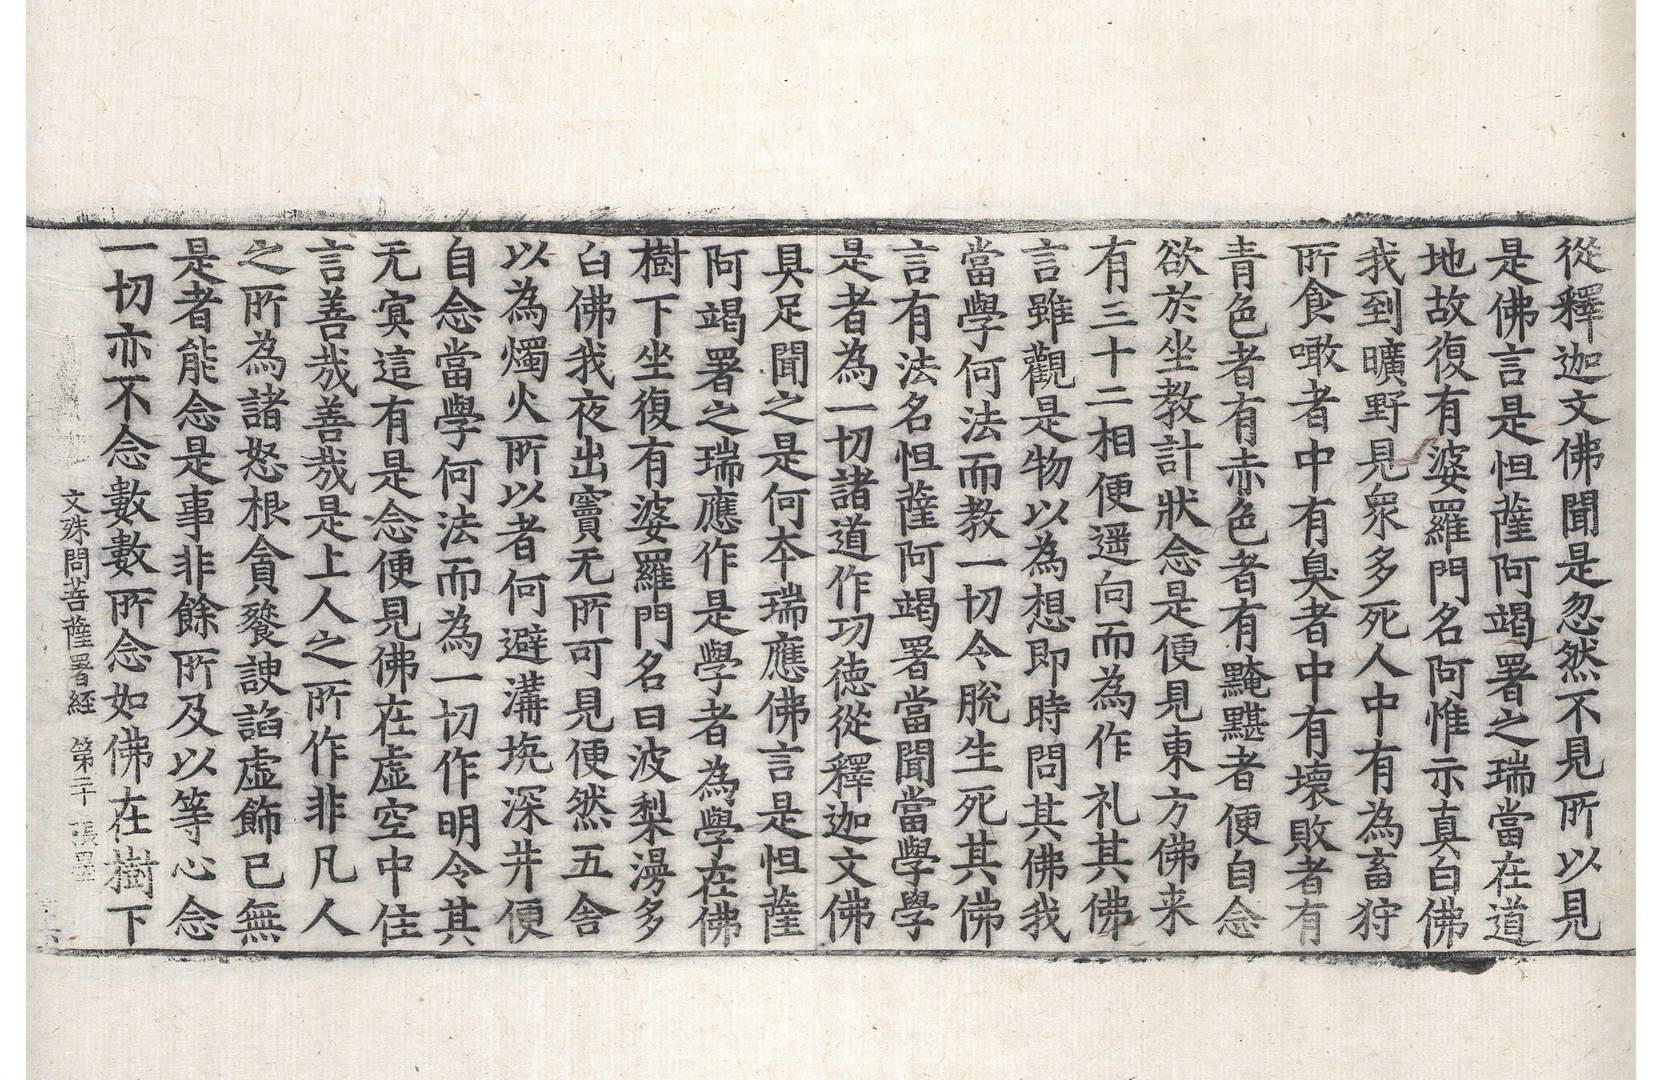 從釋迦文佛聞是忽然不見所以見
是佛言是怛薩阿竭署之瑞當在道
地故復有婆羅門名阿惟示真白佛
我到曠野見衆多死人中有為畜狩
所食噉者中有臭者中有壞敗者有
青色者有赤色者有黤黮者便自念
欲於坐教計狀念是便見東方佛来
有三十二相便遥向而為作礼其佛
言雖觀是物以為想即時問其佛我
當學何法而教一切令脫生死其佛
言有法名怛薩阿竭署當聞當學學
是者為一切諸道作功德從釋迦文佛
具足聞之是何夲瑞應佛言是怛薩
阿竭署之瑞應作是學者為學在佛
樹下坐復有婆羅門名曰波梨湯多
白佛我夜出竇无所可見便然五舍
以為燭火所以者何避溝坑深井便
自念當學何法而為一切作明令其
无㝠這有是念便見佛在虛空中住
言善哉善哉是上人之所作非凡人
之所為諸怒根貪飻諛諂虛飾已無
是者能念是事非餘所及以等心念
一切亦不念數數所念如佛在樹下
文殊問菩薩署経 第二十張 墨